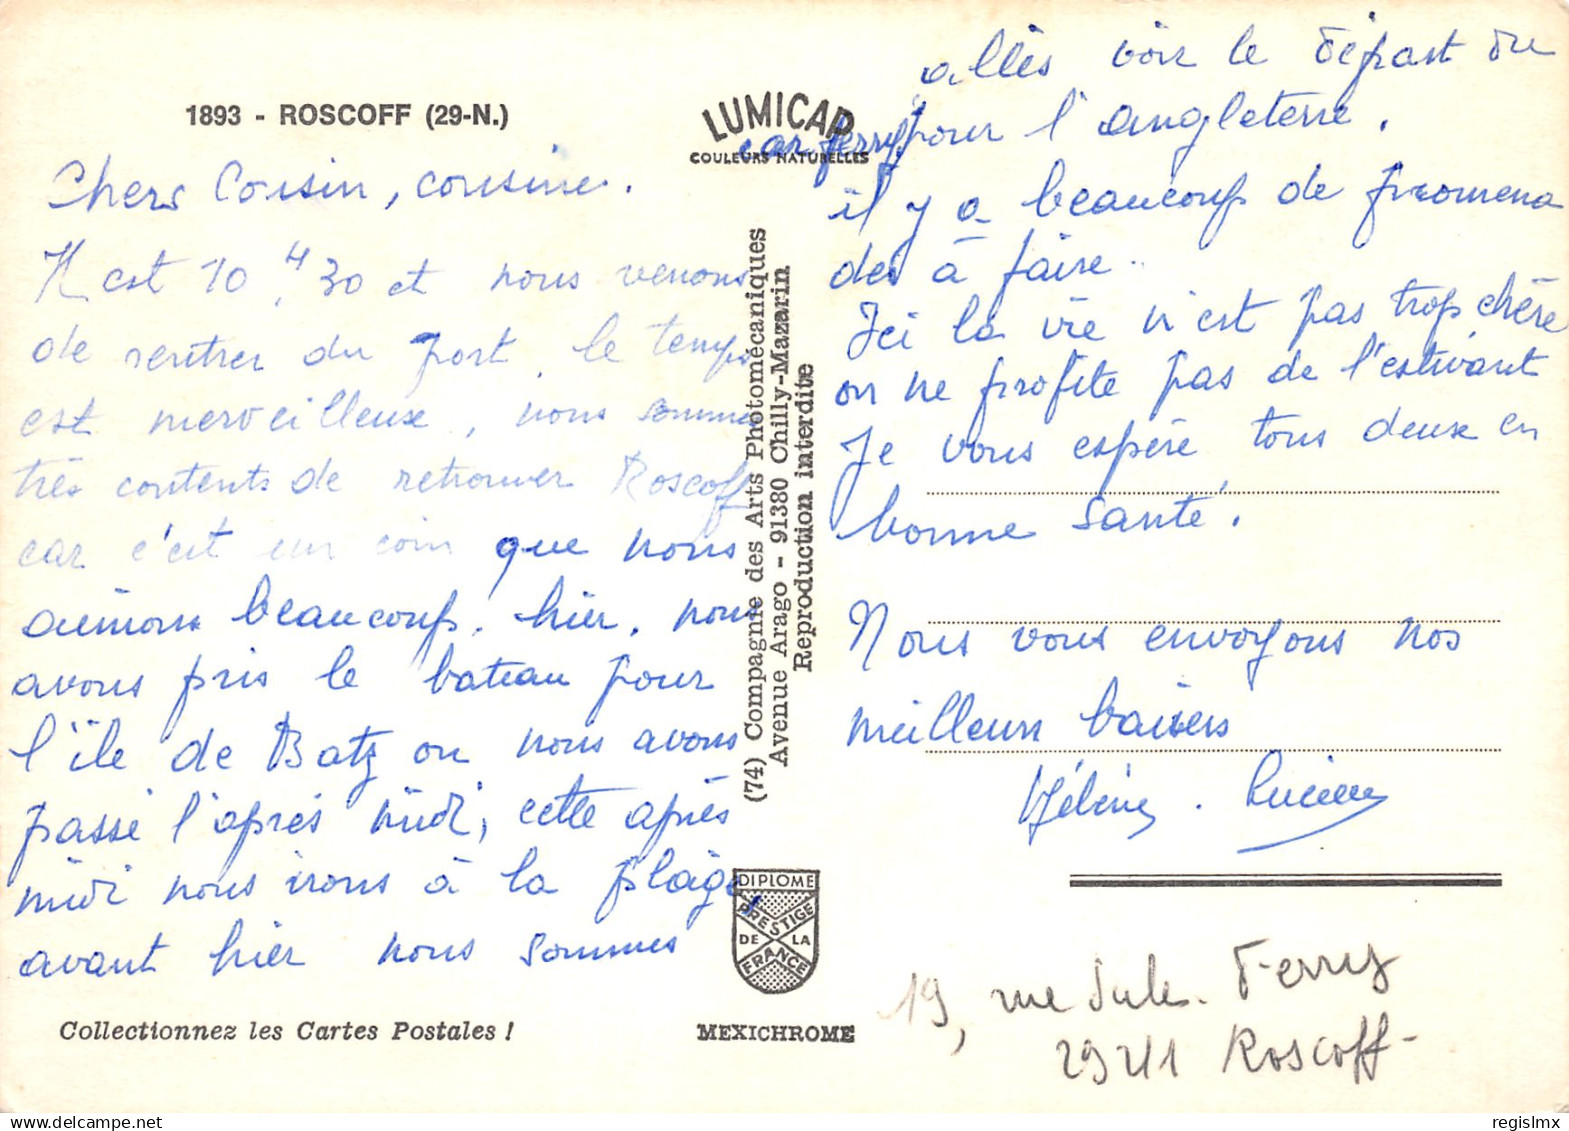 1893 - ROSCOFF (29-N.)
Chers Cousin, cousine.
Il est 10 H 30 et nous venons
de rentrer du port, le temps
est merveilleux, nous sommes
très contents de retrouver Roscoff
car c'est un coin que nous
aimons beaucoup. hier, nous
avons pris le bateau pour
l'île de Batz ou nous avons
passé l'après midi, cette après
midi nous irons à la plage,
avant hier nous sommes
Collectionnez les Cartes Postales !
LUMICAP
COULEURS NATURELLES
(74) Compagnie des Arts Photomécaniques
Avenue Arago - 91380 Chilly-Mazarin
Reproduction interdite
DIPLOME
PRESTIGE
DE LA
FRANCE
MEXICHROME
allés voir le départ du
car ferry pour l'angleterre.
il y a beaucoup de promena
des à faire.
Ici la vie n'est pas trop chère
on ne profite pas de l'estivant
Je vous espère tous deux en
bonne santé.
Nous vous envoyons nos
meilleurs baisers
Hélène. Lucien
19, rue Jules Ferry
29211 Roscoff-
regislmx